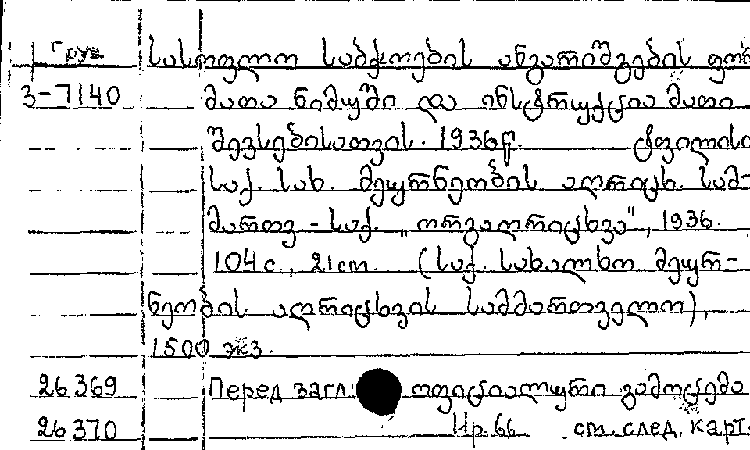 Груз. სასოფლო საბჭოების ანგარიშგების ფორ
3-7140 მათა ნიმუში და ინსტრუქცია მათი
შევსებისათვის. 1936წ. ტფილისი
საქ. სახ. მეურნეობის აღრიცხ. სამ-
მართვ. - საქ. „ორგაღრიცხვა", 1936.
104с., 21см. (საქ. სახალხო მეურ-
ნეობის აღრიცხვის სამმართველო),
1500 экз.
26369 Перед загл. ოფიციალური გამოცემა
26370 Ир. 66 см. след. карт.